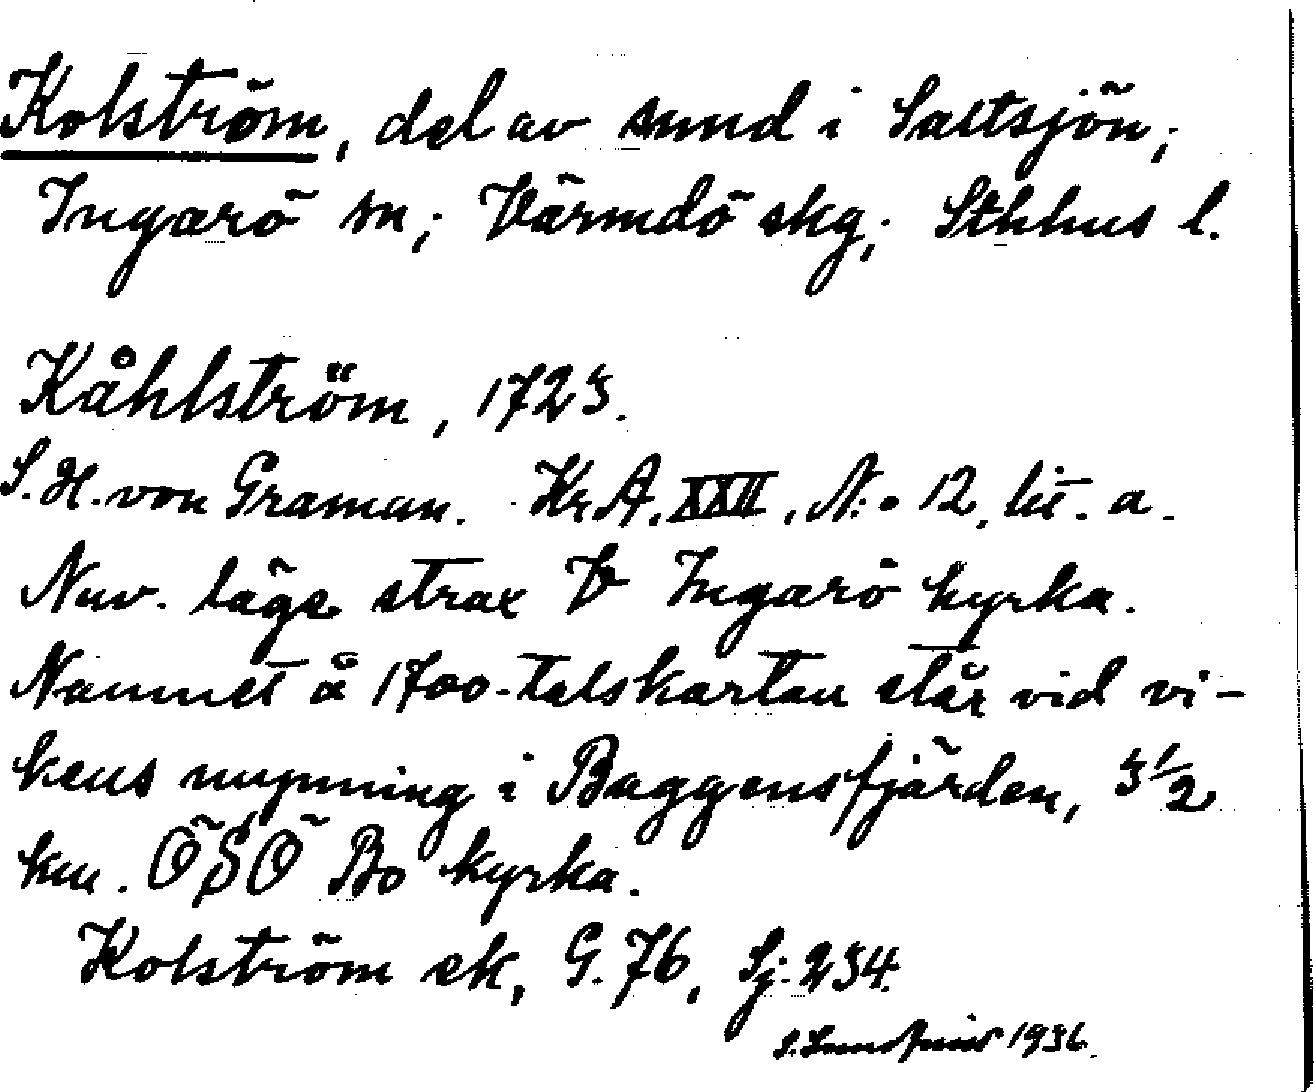 Kolström, del av sund i Saltsjön;
Ingarö sn; Värmdö skg; Sthhus l.
Kåhlström, 1723.
S.H. von Graman. Kr.A. XXII, N:o 12, lit. a.
Nuv. läge strax V Ingarö kyrka.
Namnet å 1700-talskartan står vid vi-
kens mynning i Baggensfjärden, 3 1/2
km. ÖSÖ Bo kyrka.
Kolström ek, G. 76, Sj. 234.
1936.